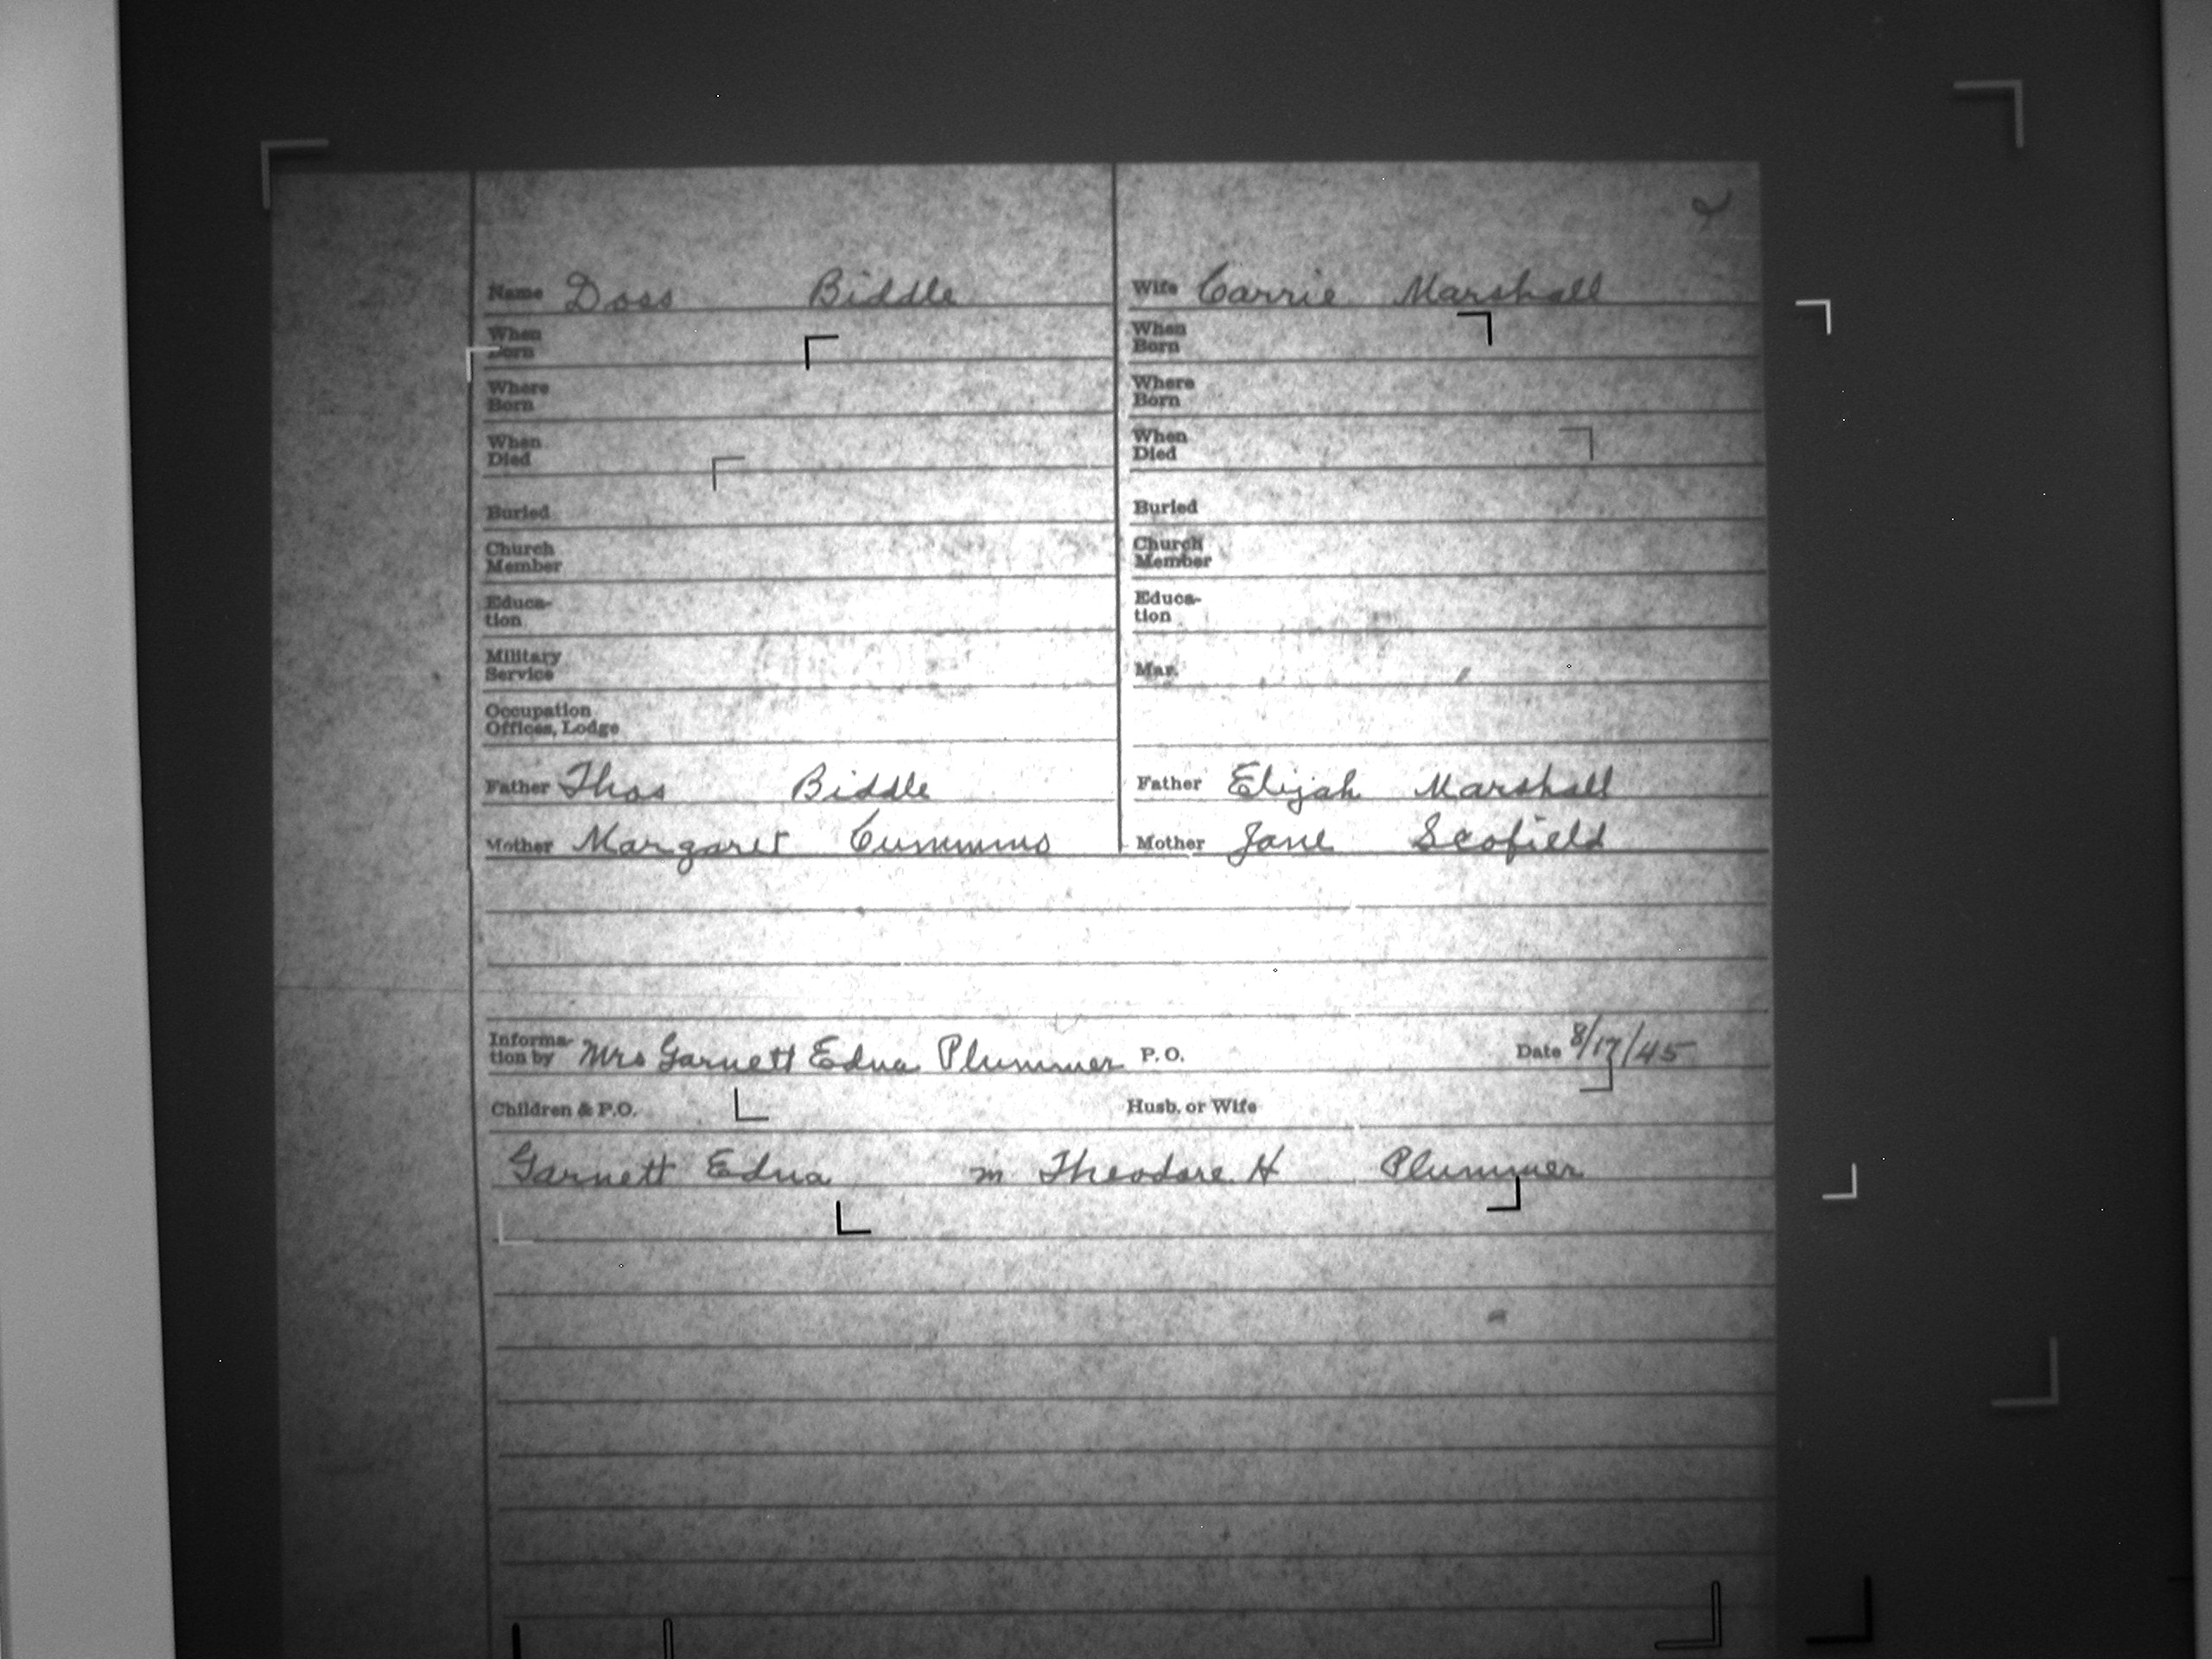 2
Name Doss Biddle
Wife Carrie Marshall
When Born
When Born
Where Born
Where Born
When Died
When Died
Buried
Buried
Church Member
Church Member
Educa-tion
Educa-tion
Military Service
Mar.
Occupation Offices, Lodge
Father Thos Biddle
Father Elijah Marshall
Mother Margaret Cummins
Mother Jane Scofield
Informa-tion by Mrs Garnett Edna Plummer P. O. Date 8/17/45
Children & P.O. Husb. or Wife
Garnett Edna m Theodore H Plummer